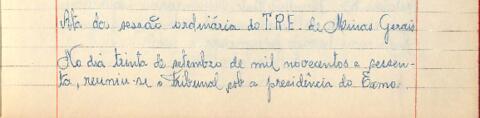 Ata da sessão ordinária do T.R.E. de Minas Gerais
No dia trinta de setembro de mil novecentos e sessen-
ta, reuniu-se o Tribunal sob a presidência do Exmo.